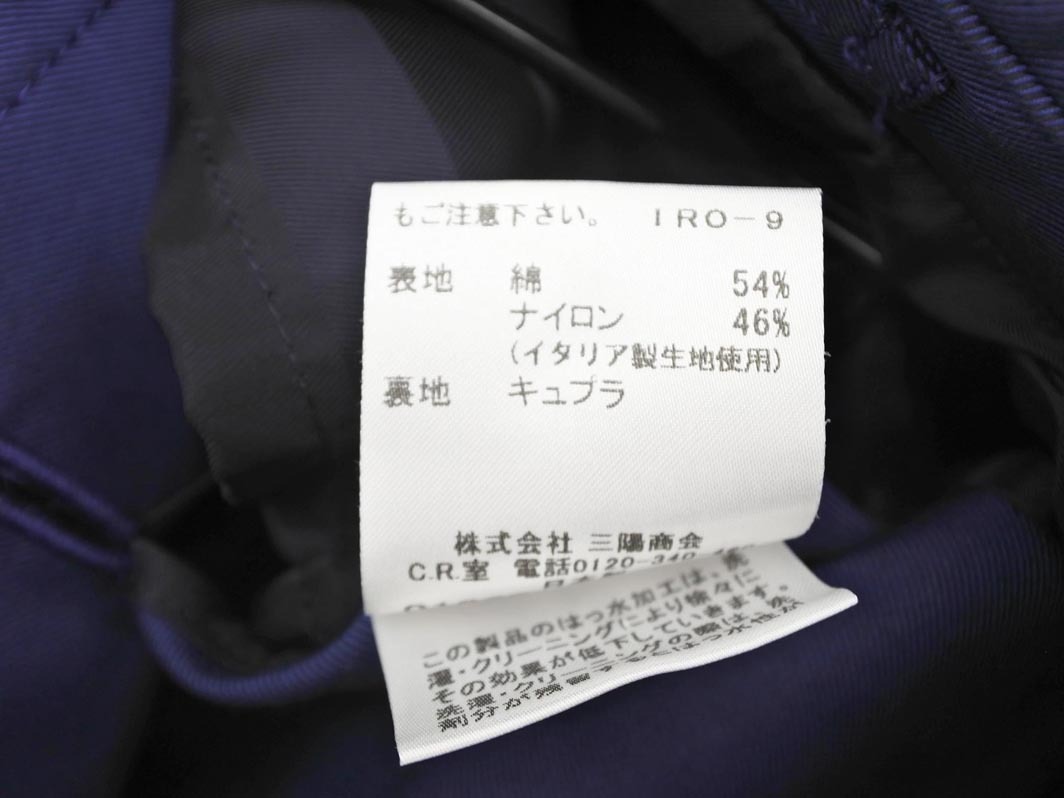 もご注意下さい。 IRO-9
表地 綿 54%
ナイロン 46%
(イタリア製生地使用)
裏地 キュプラ
株式会社 三陽商会
C.R.室 電話0120-340-
この製品のはっ水加工は、洗
濯・クリーニングにより徐々に
その効果が低下していきます。
洗濯・クリーニングの際は、洗
剤分が残留するとはっ水性が